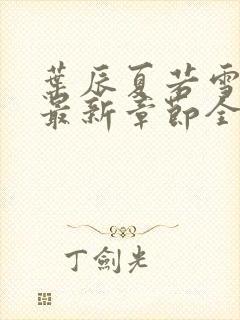 葉辰夏若雪
最新章節全
丁劍光